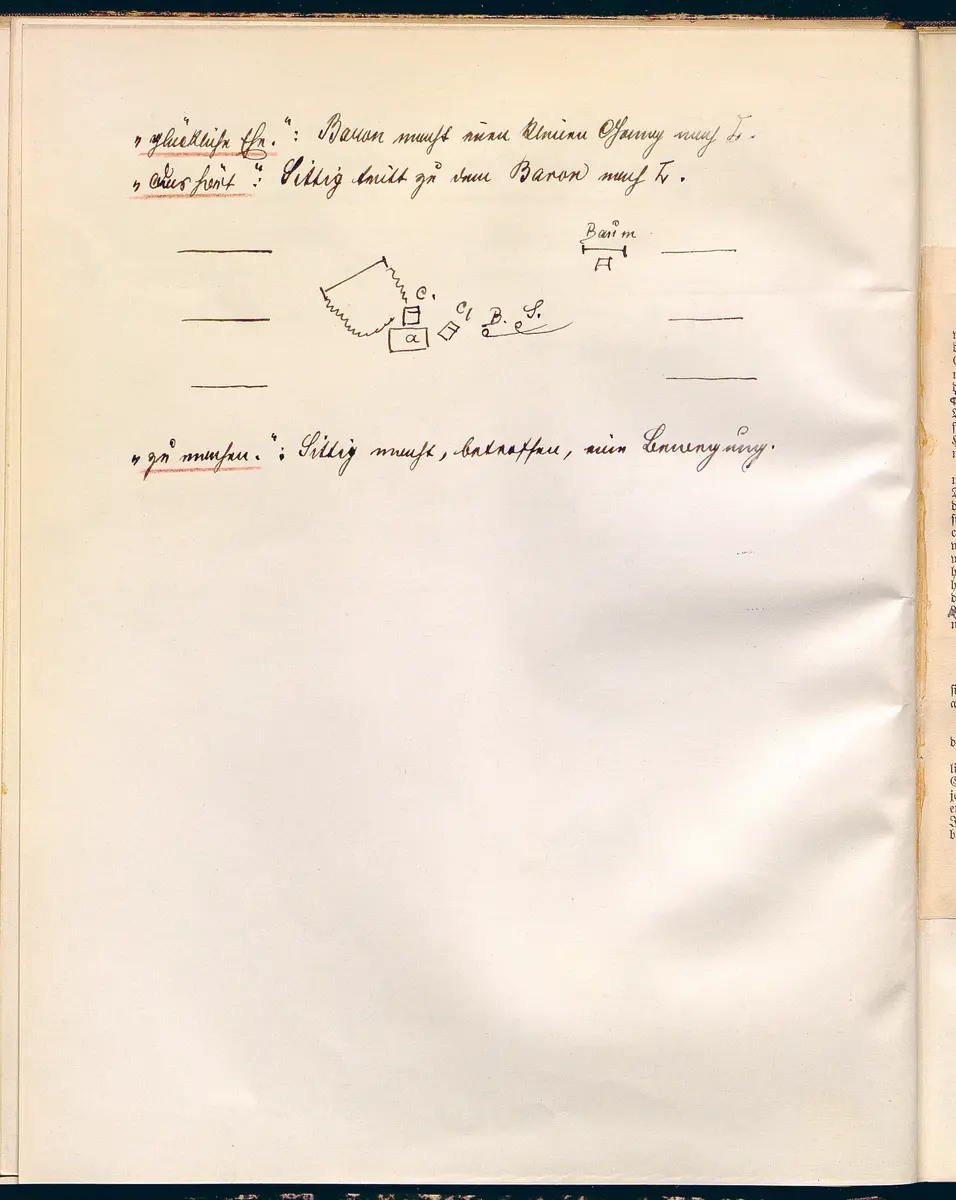 „glückliche Ehe.“: Baron macht einen kleinen Gang nach L.
„aus hört“: Sittig tritt zu dem Baron nach L.
Baum
C. C, B. S.
a
„zu machen.“: Sittig macht, betroffen, eine Bewegung.